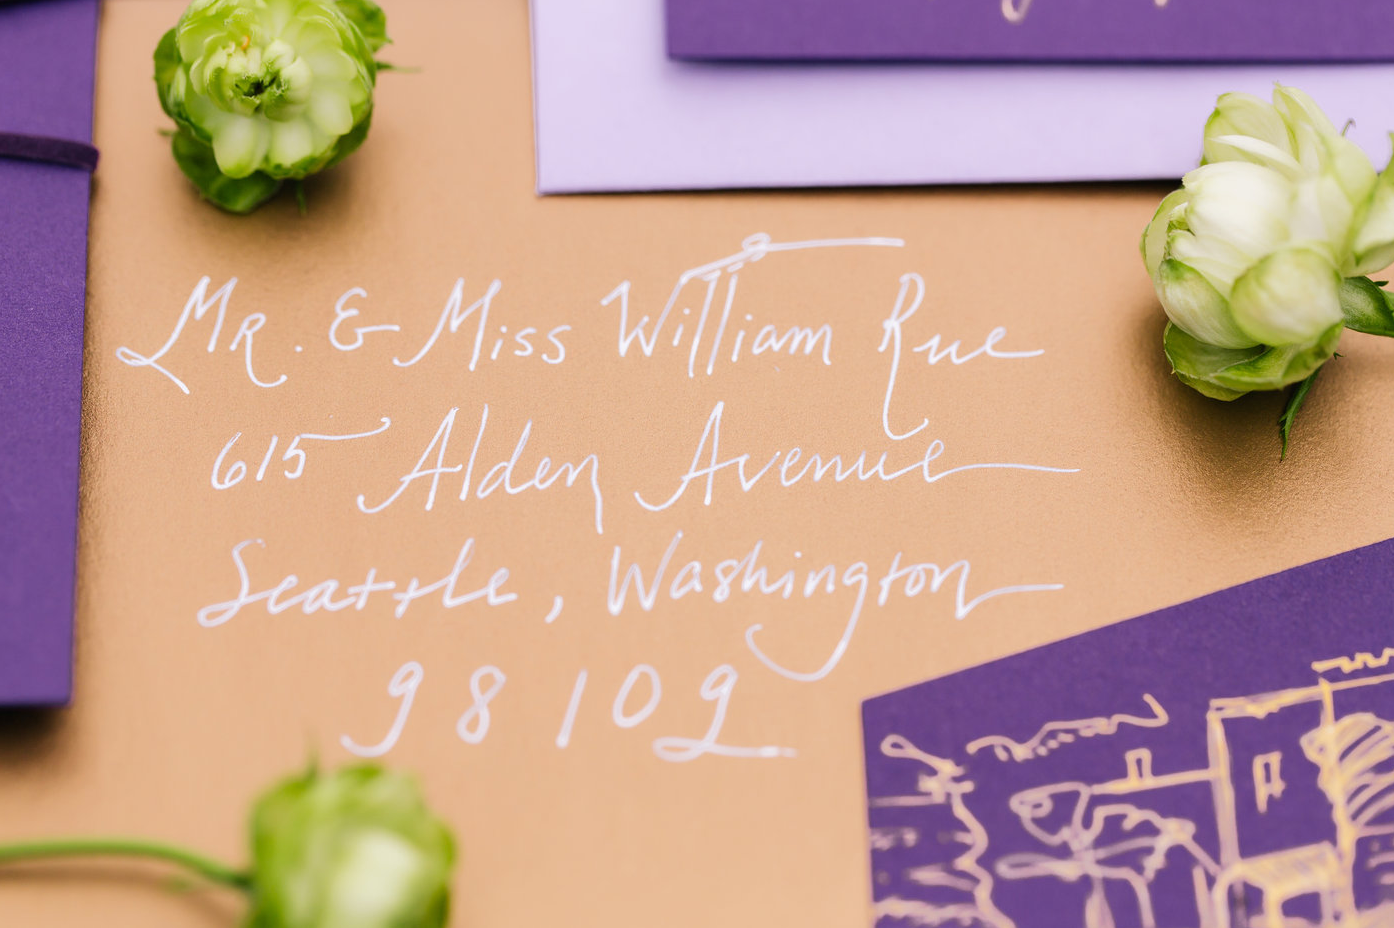 Mr. & Miss William Rue
615 Alden Avenue
Seattle, Washington
98109